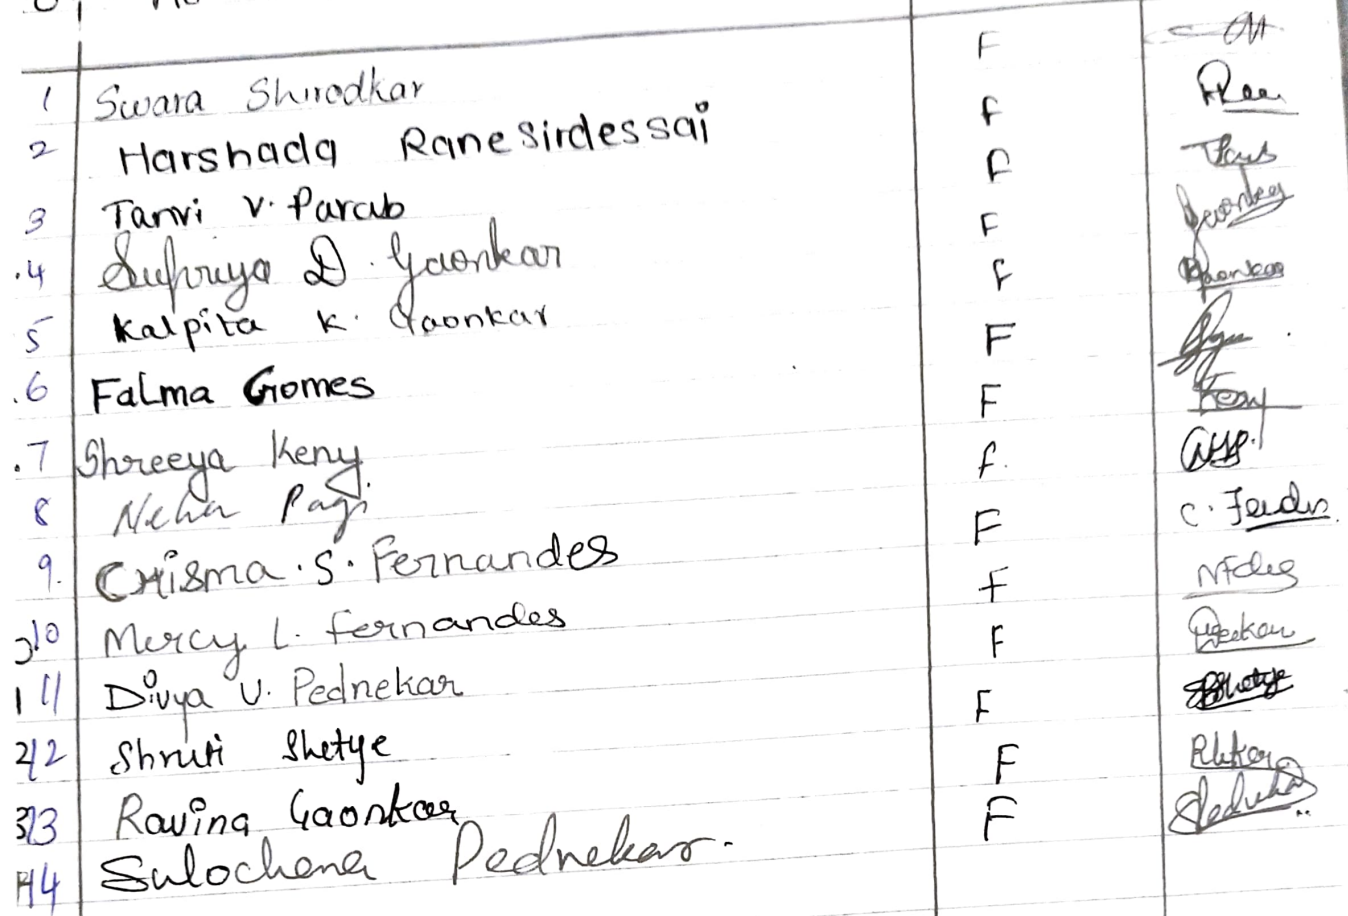 1 Swara Shirodkar F
2 Harshada Ranesirdessai F
3 Tanvi V. Parab F
4 Supriya D. Gaonkar F
5 Kalpita K. Gaonkar F
6 Falma Gomes F
7 Shreeya Keny F Keny
8 Neha Pagi F
9. Chisma . S. Fernandes F C. Fends
10 Mercy L. Fernandes F
11 Divya U. Pednekar F
12 Shruti Shetye F Shetye
13 Ravina Gaonkar F
14 Sulochana Pednekar. F